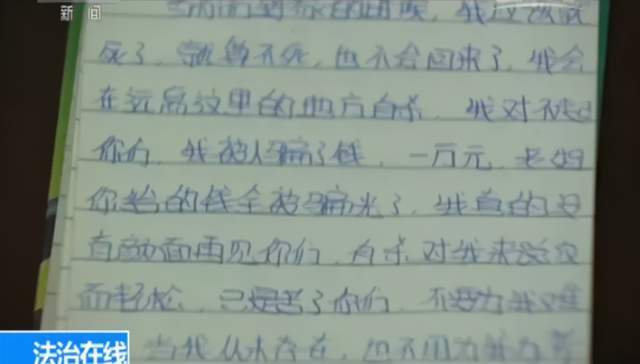 新闻
死了,就算不死,也不会回来了,我会
在远离这里的地方自杀,我对不起
你们,我被人骗了钱,一万元,老婶
你给的钱全被骗光了,我真的没
有颜面再见你们,自杀对我来说反
而轻松,只是苦了你们,不要为我难
当我从未存在,也不用为我
法治在线